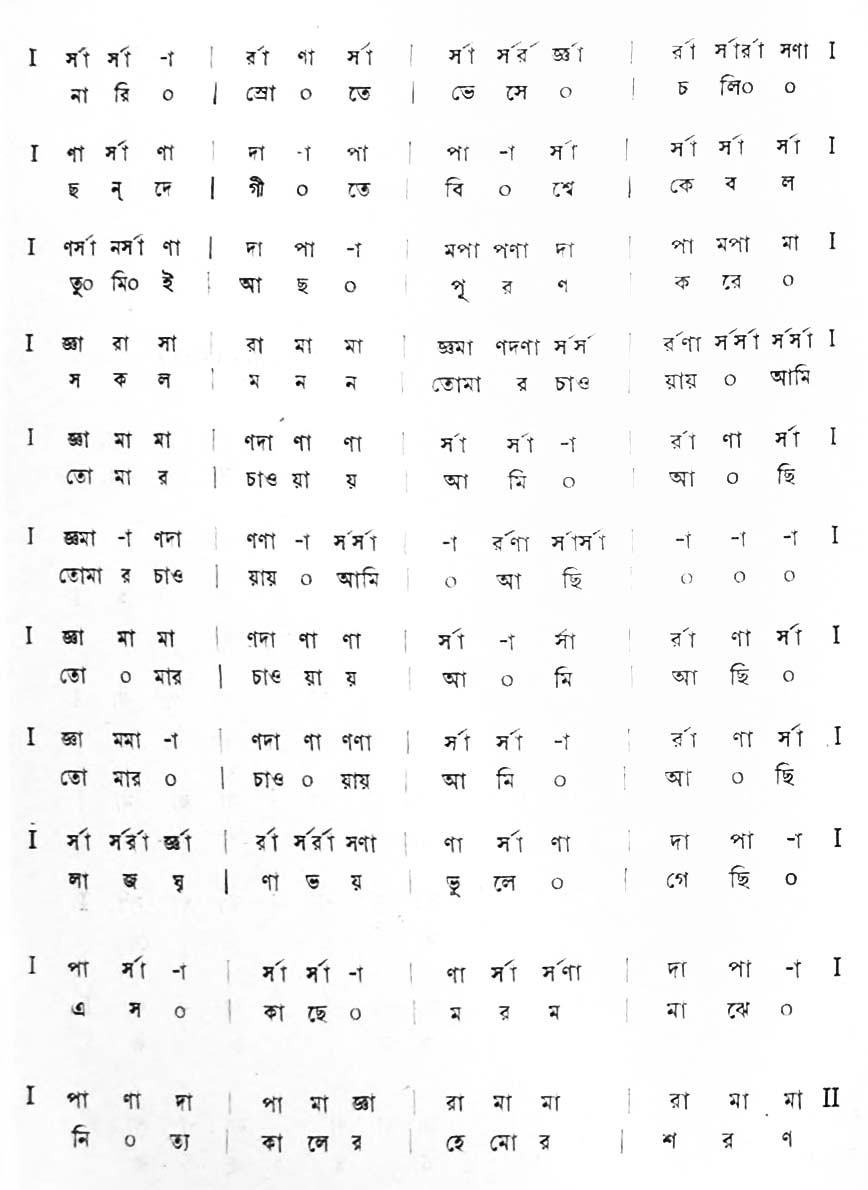 I র্সা র্সা -া | র্রা ণা র্সা | র্সা র্সর্র র্জ্ঞা | র্রা র্সার্রা সণা I
না রি ০ | স্রো ০ তে | ভে সে ০ | চ লি০ ০
I ণা র্সা ণা | দা -া পা | পা -া র্সা | র্সা র্সা র্সা I
ছ ন্ দে | গী ০ তে | বি ০ শ্বে | কে ব ল
I ণর্সা নর্সা ণা | দা পা -া | মপা পণা দা | পা মপা মা I
তু০ মি০ ই | আ ছ ০ | পূ র ণ | ক রে ০
I জ্ঞা রা সা | রা মা মা | জ্ঞমা ণদণা র্সর্স | র্রণা র্সর্সা র্সর্সা I
স ক ল | ম ন ন | তোমা র চাও | য়ায় ০ আমি
I জ্ঞা মা মা | ণদা ণা ণা | র্সা র্সা -া | র্রা ণা র্সা I
তো মা র | চাও য়া য় | আ মি ০ | আ ০ ছি
I জ্ঞমা -া ণদা | ণণা -া র্সর্সা | -া র্রণা র্সার্সা | -া -া -া I
তোমা র চাও | য়ায় ০ আমি | ০ আ ছি | ০ ০ ০
I জ্ঞা মা মা | ণদা ণা ণা | র্সা -া র্সা | র্রা ণা র্সা I
তো ০ মার | চাও য়া য় | আ ০ মি | আ ছি ০
I জ্ঞা মমা -া | ণদা ণা ণণা | র্সা র্সা -া | র্রা ণা র্সা I
তো মার ০ | চাও ০ য়ায় | আ মি ০ | আ ০ ছি
I র্সা র্সর্রা র্জ্ঞা | র্রা র্সর্রা সণা | ণা র্সা ণা | দা পা -া I
লা জ ঘৃ | ণা ভ য় | ভু লে ০ | গে ছি ০
I পা র্সা -া | র্সা র্সা -া | ণা র্সা র্সণা | দা পা -া I
এ স ০ | কা ছে ০ | ম র ম | মা ঝে ০
I পা ণা দা | পা মা জ্ঞা | রা মা মা | রা মা মা II
নি ০ ত্য | কা লে র | হে মো র | শ র ণ